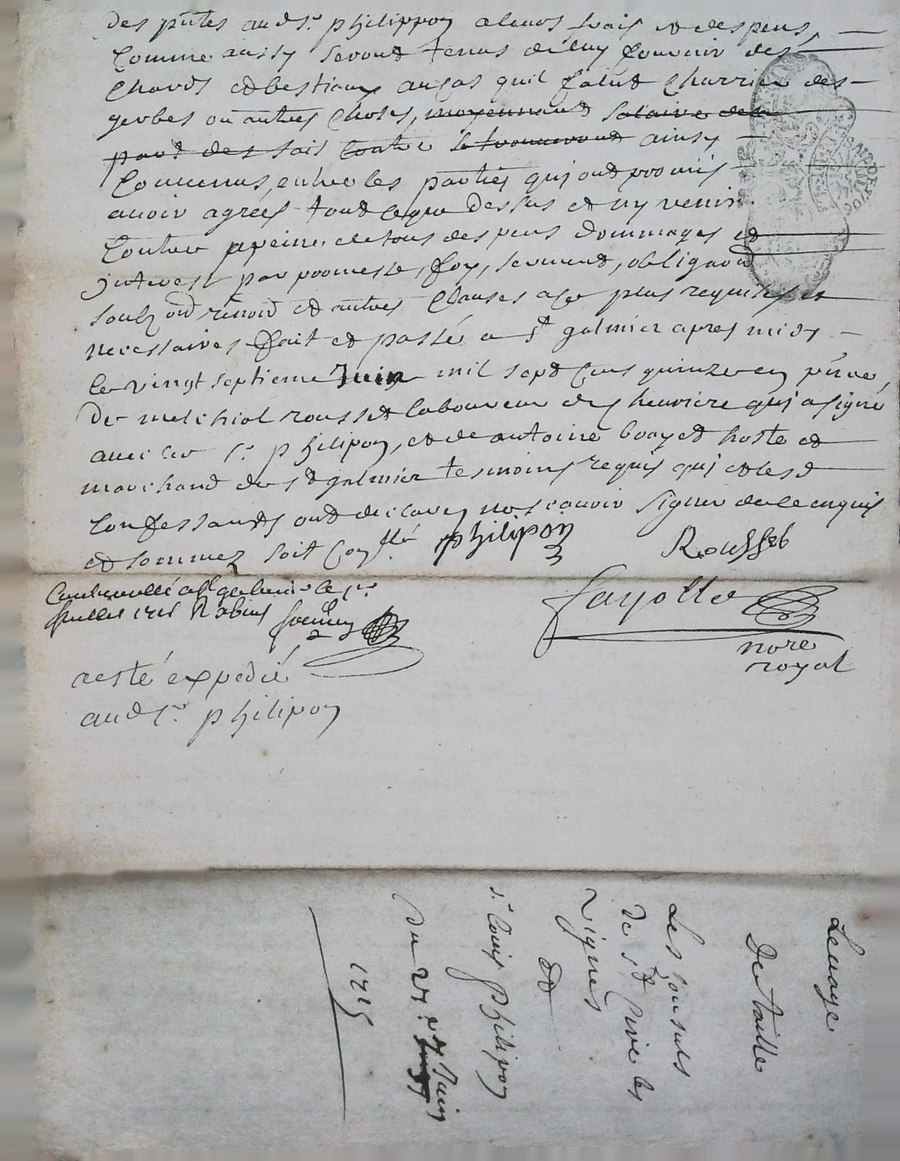 des pntes aud sr philippon a leurs frais et despens,
Comme aussy seront tenus de luy fournir des
Chards et bestiaux au cas quil falut Charrier des
gerbes ou autres choses, moyennant salaire de la
part des fait contre ainsy
Convenus, entre les parties qui ont promis
avoir agreé tout ce que dessus et ny venir
Contre a peine de tous despens dommages et
interest par promesse, foy, serment, obligaon
soubz on renon et autres Clauses a ce plus requises et
necessaires fait et passé a st galmier apres midy
le vingt septieme Juin mil sept cens quinze en pnce
de melchiol rousset laboureur de qui a signé
avec led sr philipon, et de antoine boayet hoste et
marchand de st galmier tesmoins requis qui et lesd
Confessants ont declarez ne scavoir signer de ce enquis
et sommez soit Con llé philipon Rousset
Controullé a st galmier le 1er
Juillet 1715 R
fayolle
nore
royal
a esté expedié
aud sr philipon
Levage
De taille
Les Consuls
de st Cire les
vignes
et
sr louis philipon
Du 27e Juin
1715